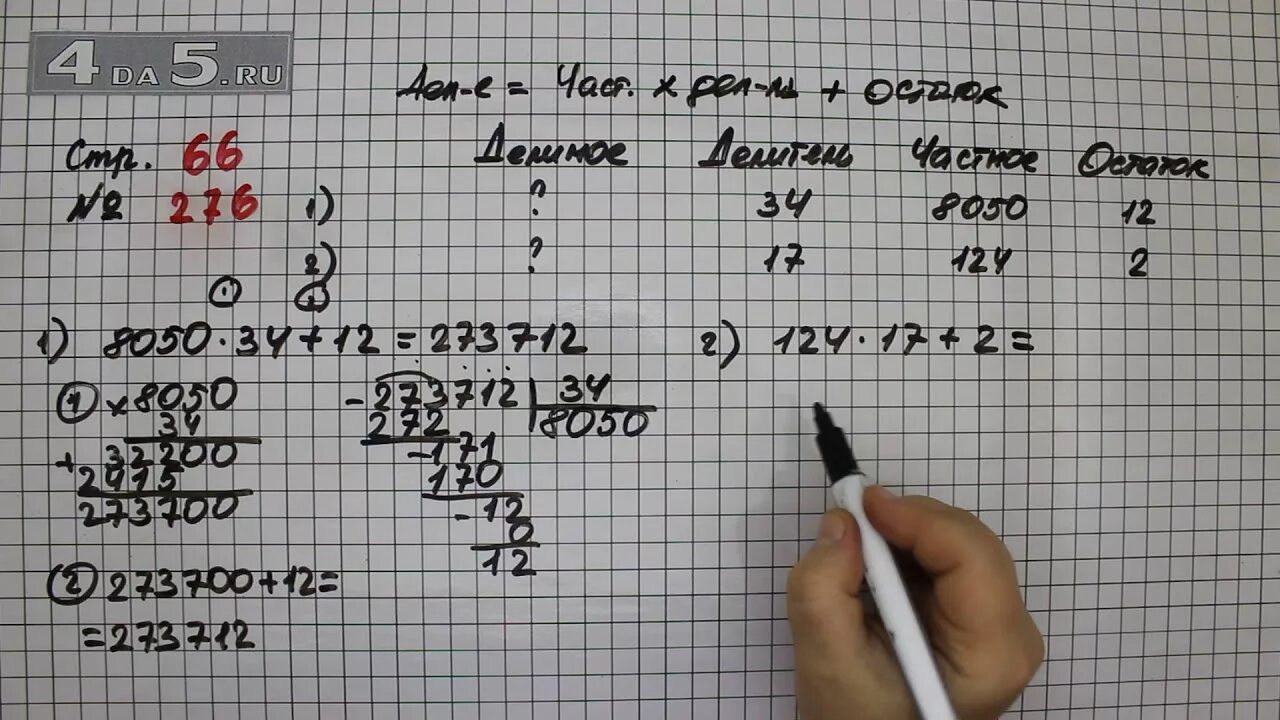 4DA5.RU
Дел-е = Част. х дел-ль + остаток
Стр. 66
№ 276
Делимое Делитель Частное Остаток
1) ? 34 8050 12
2) ? 17 124 2
1) 8050 · 34 + 12 = 273712
2) 124 · 17 + 2 =
① × 8050
34
+ 32200
2415
273700
- 273712 | 34
272 8050
- 171
170
- 12
0
12
② 273700 + 12 =
= 273712